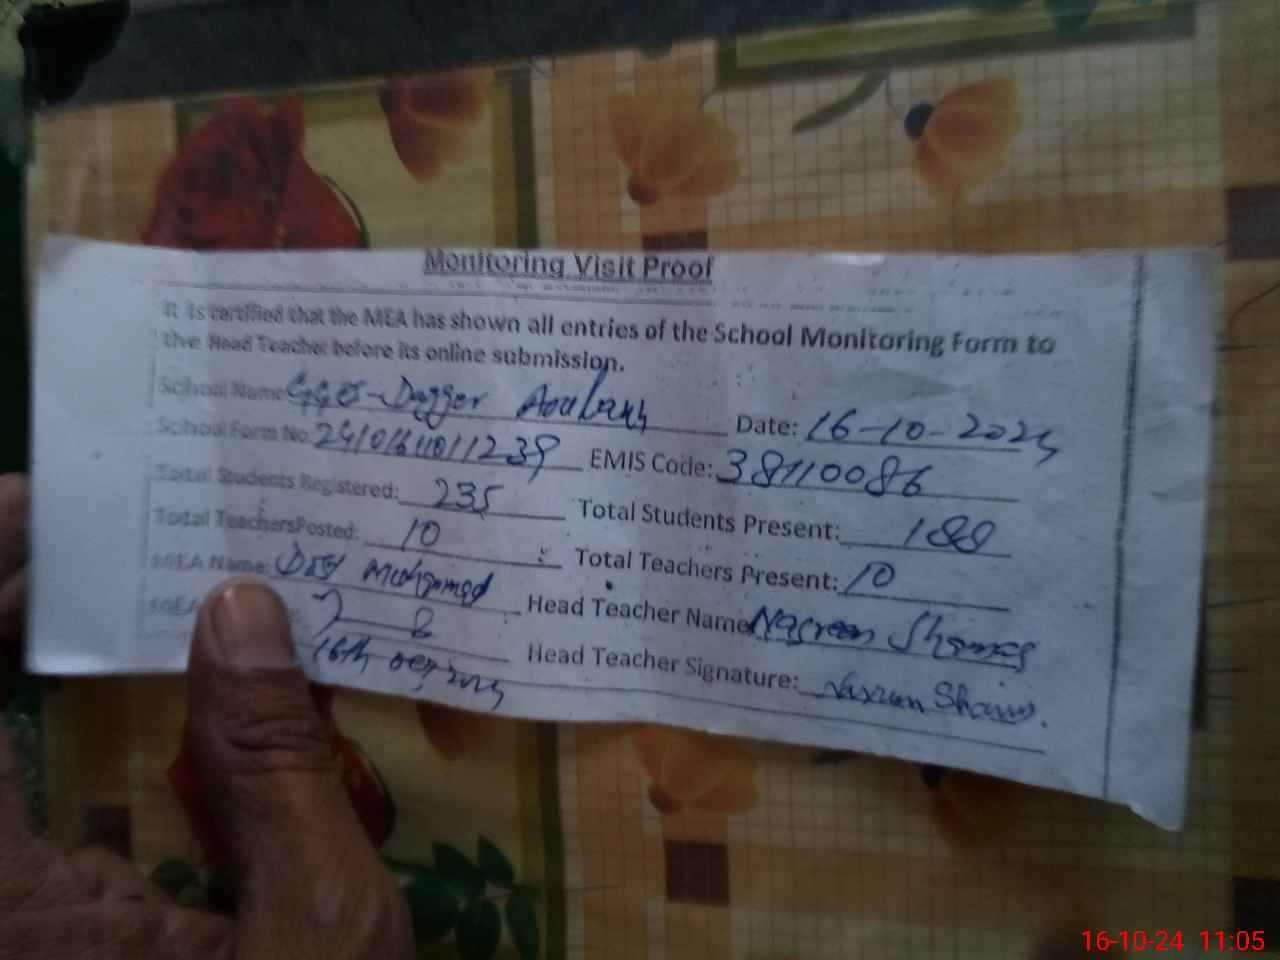 Monitoring Visit Proof
It is certified that the MEA has shown all entries of the School Monitoring Form to
the Head Teacher before its online submission.
School Name: GGES-Dagger Date: 16-10-2024
School Form No: 2410161011239 EMIS Code: 38110086
Total Students Registered: 235 Total Students Present: 188
Total TeachersPosted: 10 Total Teachers Present: 10
MEA Name: Mohammad Head Teacher Name: Nasreen Shamas
MEA Head Teacher Signature: Nasreen Shams.
16th oct, 2024
16-10-24 11:05